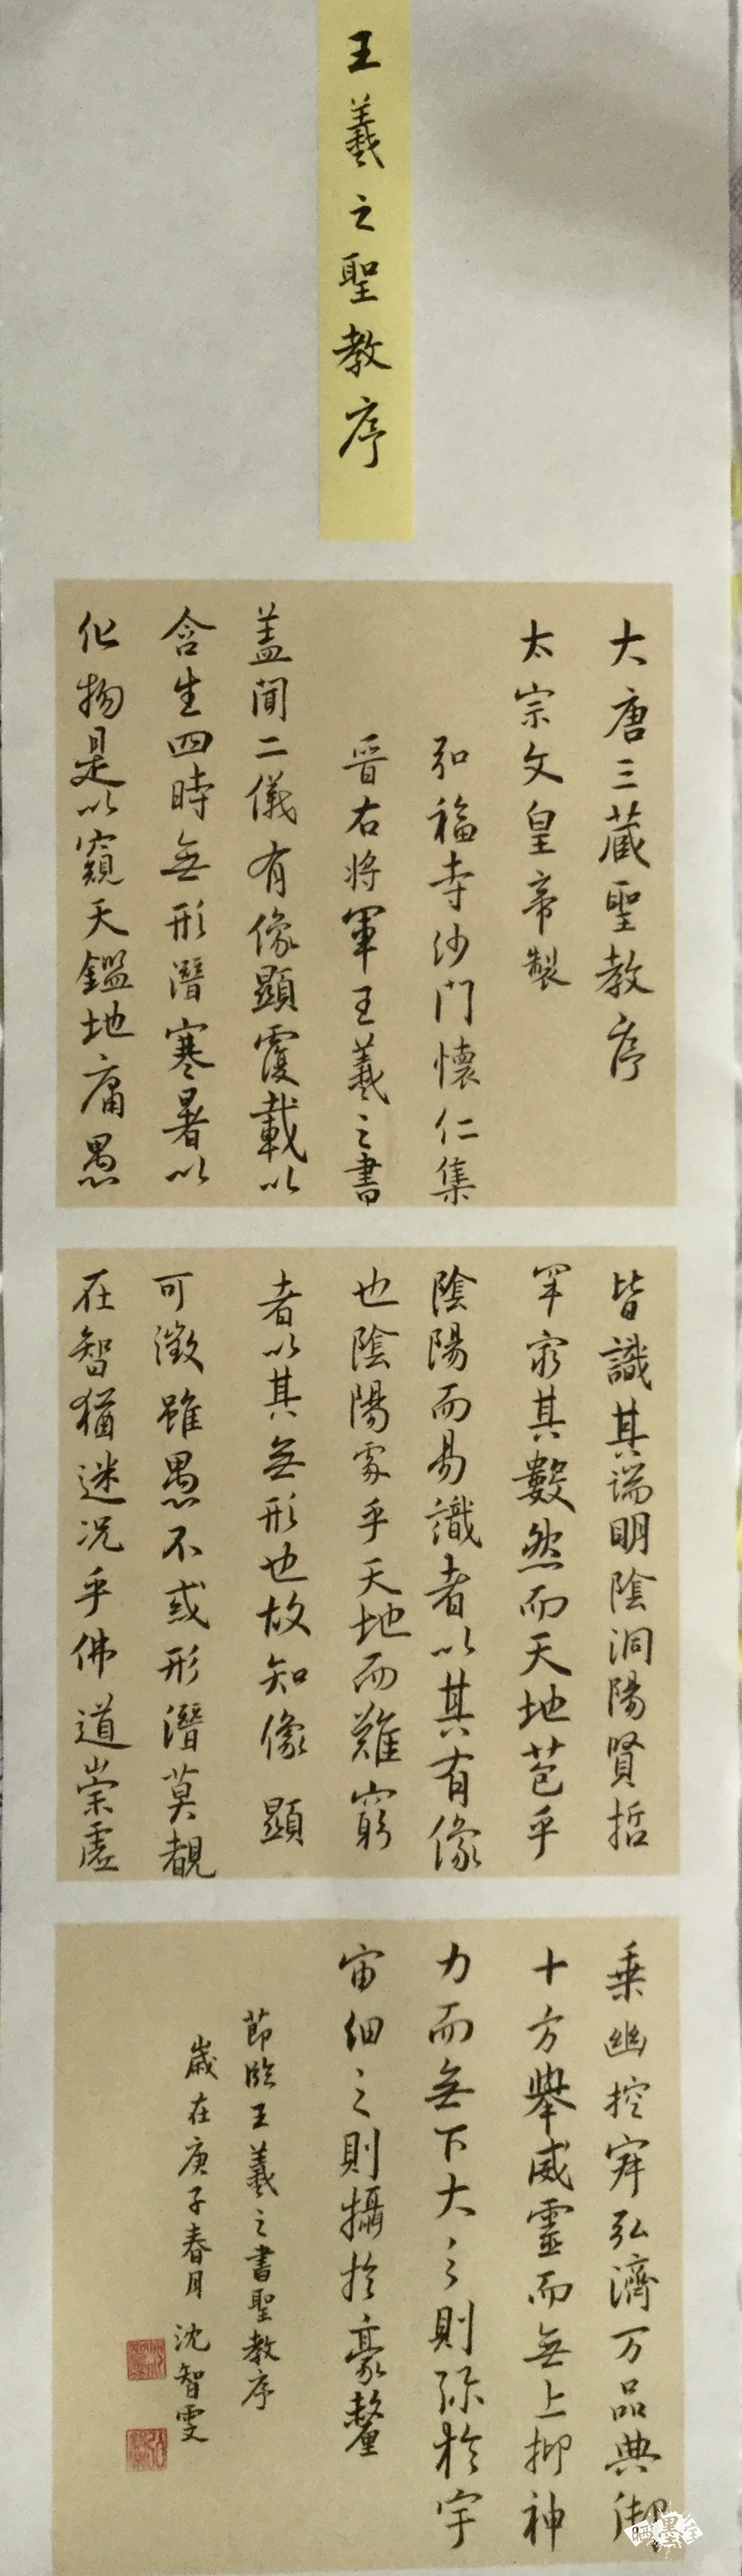 王羲之聖教序
大唐三藏聖教序
太宗文皇帝製
弘福寺沙門懷仁集
晉右将軍王羲之書
蓋聞二儀有像顯覆載以
含生四時無形潛寒暑以
化物是以窺天鑑地庸愚
皆識其端明陰洞陽賢哲
罕窮其數然而天地苞乎
陰陽而易識者以其有像
也陰陽處乎天地而難窮
者以其無形也故知像顯
可徵雖愚不惑形潛莫覩
在智猶迷況乎佛道崇虛
乘幽控寂弘濟万品典御
十方舉威靈而無上抑神
力而無下大之則弥於宇
宙細之則攝於豪釐
節臨王羲之書聖教序
歲在庚子春月沈智雯